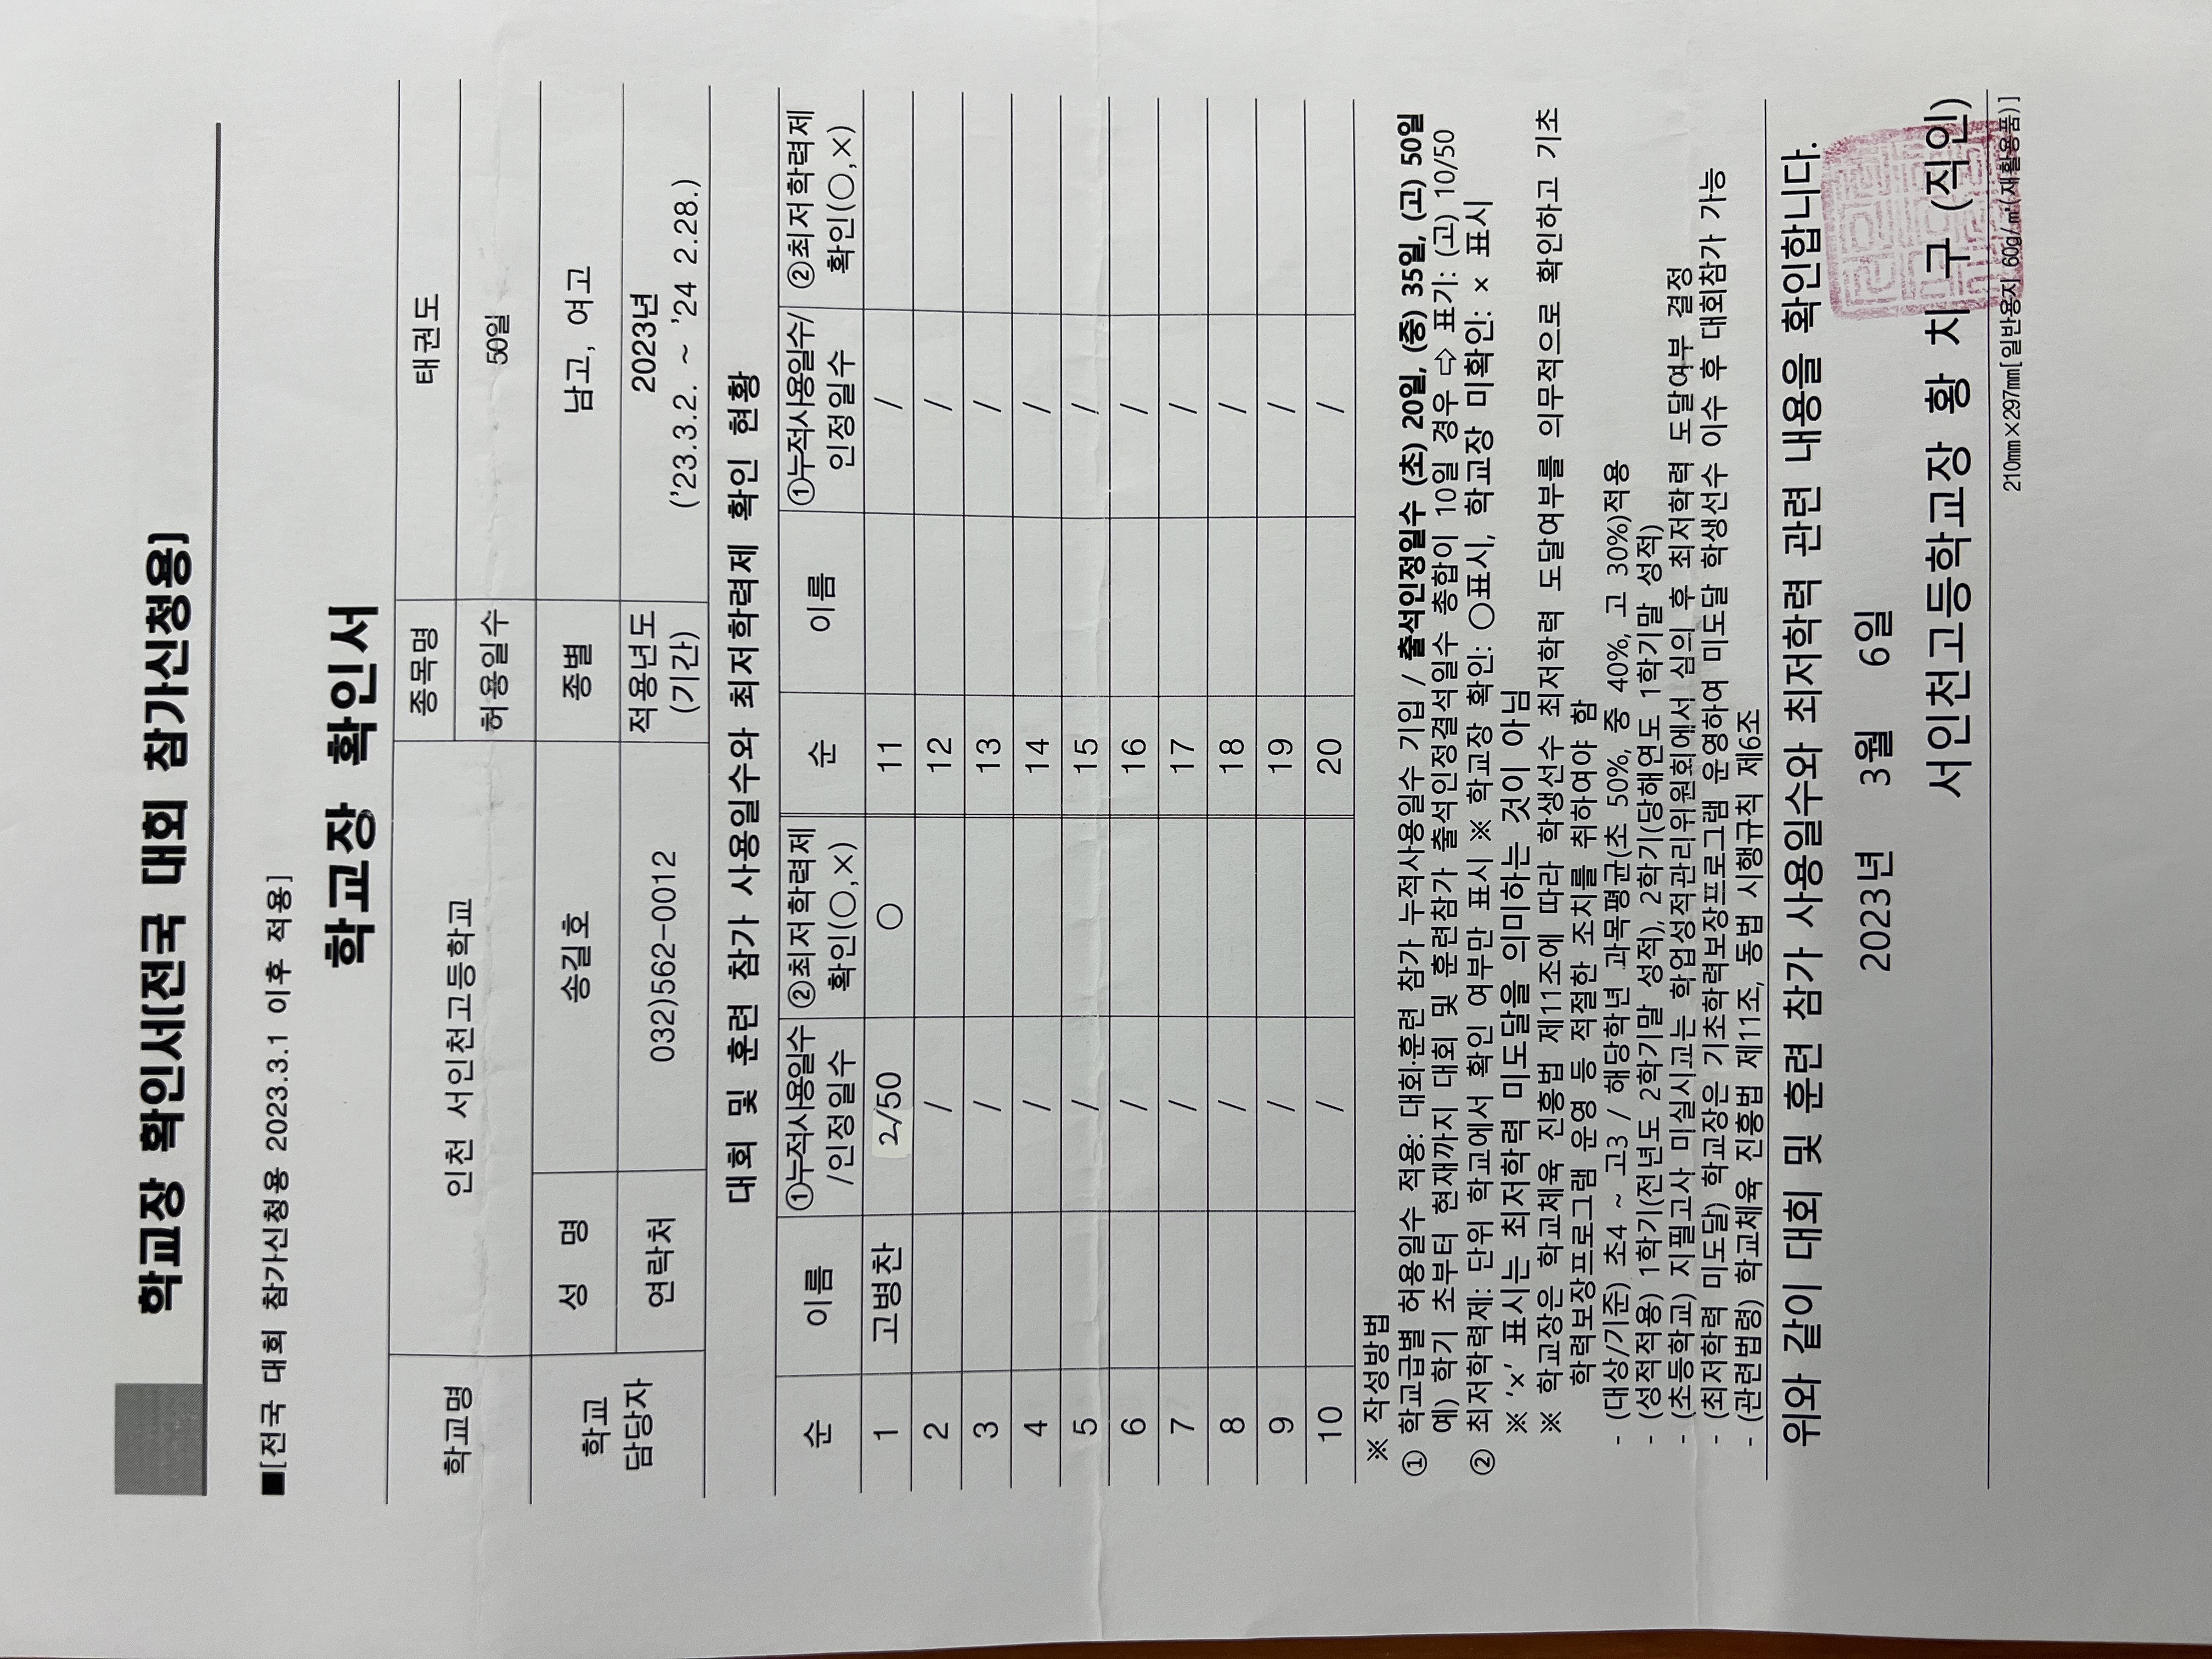 학교장 확인서(전국 대회 참가신청용)
■[전국 대회 참가신청용 2023.3.1 이후 적용]
학교장 확인서
학교명 인천 서인천고등학교 종목명 태권도
허용일수 50일
학교 담당자 성 명 송길호 종별 남고, 여고
연락처 032)562-0012 적용년도 (기간) 2023년 ('23.3.2. ~ '24 2.28.)
대회 및 훈련 참가 사용일수와 최저학력제 확인 현황
순 이름 ①누적사용일수 /인정일수 ②최저학력제 확인(○,×) 순 이름 ①누적사용일수/ 인정일수 ②최저학력제 확인(○,×)
1 고병찬 2/50 ○ 11 /
2 / 12 /
3 / 13 /
4 / 14 /
5 / 15 /
6 / 16 /
7 / 17 /
8 / 18 /
9 / 19 /
10 / 20 /
※ 작성방법
① 학교급별 허용일수 적용: 대회·훈련 참가 누적사용일수 기입 / 출석인정일수 (초) 20일, (중) 35일, (고) 50일
예) 학기 초부터 현재까지 대회 및 훈련참가 출석인정결석일수 총합이 10일 경우 ⇨ 표기: (고) 10/50
② 최저학력제: 단위 학교에서 확인 여부만 표시 ※ 학교장 확인: ○표시, 학교장 미확인: × 표시
※ '×' 표시는 최저학력 미도달을 의미하는 것이 아님
※ 학교장은 학교체육 진흥법 제11조에 따라 학생선수 최저학력 도달여부를 의무적으로 확인하고 기초
학력보장프로그램 운영 등 적절한 조치를 취하여야 함
- (대상/기준) 초4 ~ 고3 / 해당학년 과목평균(초 50%, 중 40%, 고 30%)적용
- (성적적용) 1학기(전년도 2학기말 성적), 2학기(당해연도 1학기말 성적)
- (초등학교) 지필고사 미실시교는 학업성적관리위원회에서 심의 후 최저학력 도달여부 결정
- (최저학력 미도달) 학교장은 기초학력보장프로그램 운영하여 미도달 학생선수 이수 후 대회참가 가능
- (관련법령) 학교체육 진흥법 제11조, 동법 시행규칙 제6조
위와 같이 대회 및 훈련 참가 사용일수와 최저학력 관련 내용을 확인합니다.
2023년 3월 6일
서인천고등학교장 황 치 구 (직인)
210㎜×297㎜[일반용지 60g/㎡(재활용품)]